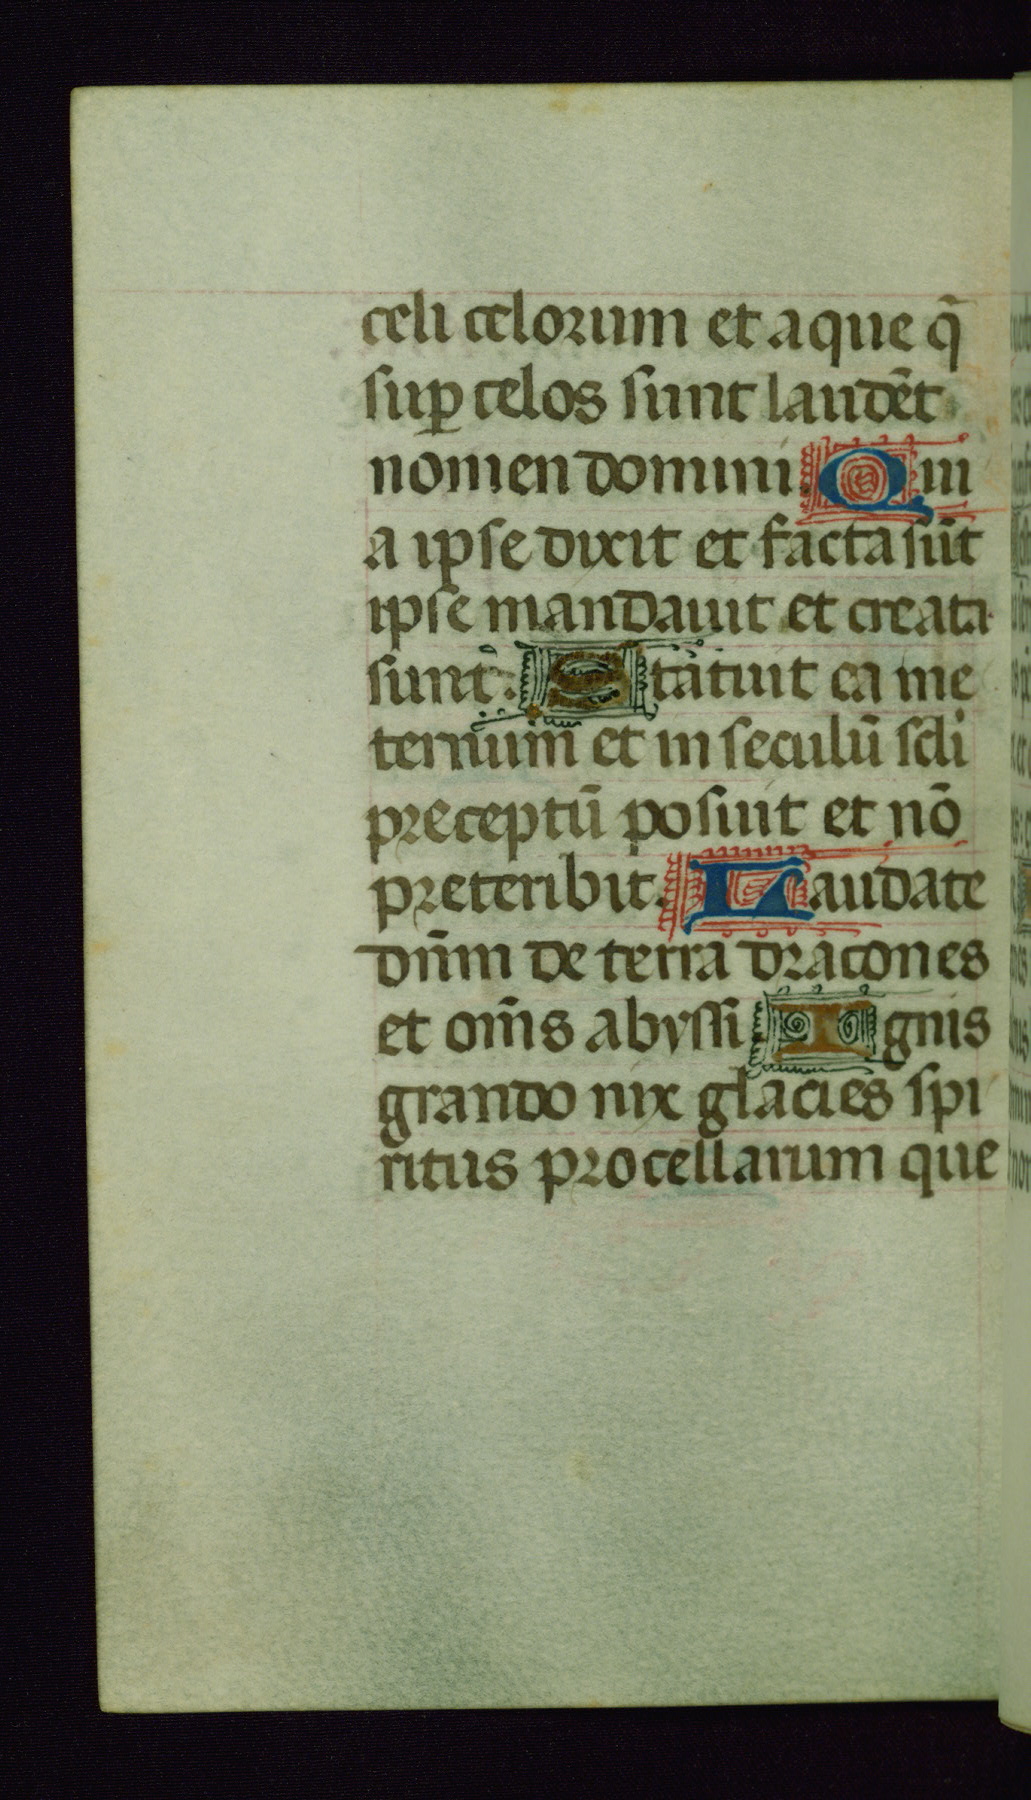 celi celorum et aque q̃
suꝑ celos sunt laudēt
nomen domini. Qui
a ipse dixit et facta sūt
ipse mandauit et creata
sunt. Statuit ea ine
ternum et in seculū scli
preceptū posuit et nō
preteribit. Laudate
dn̄m de terra dracones
et om̄s abyssi. Ignis
grando nix glacies spi
ritus procellarum que